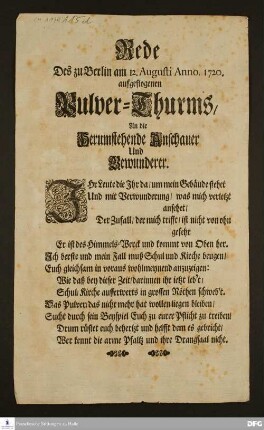 Rede
Des zu Berlin am 12. Augusti Anno. 1720,
aufgeflogenen
Pulver-Thurms/
An die
Herumstehende Anschauer
Und
Bewunderer.
IHr Leute die Ihr da/ um mein Gebäude stehet
Und mit Verwunderung/ was mich verletzt
ansehet/
Der Zufall/ der mich trifft/ ist nicht von ohn
gefehr
Er ist des Himmels Werck und kommt von Oben her.
Ich berste und mein Fall muß Schul und Kirche beugen/
Euch gleichsam in voraus wohlmeynend anzuzeigen:
Wie daß bey dieser Zeit/ darinnen ihr ietzt leb't;
Schul/ Kirche ausserwerts in grossen Nöthen schweb't.
Was Pulver/ das nicht mehr hat wollen liegen bleiben/
Sucht durch sein Beyspiel Euch zu eurer Pflicht zu treiben/
Drum rüstet euch behertzt und helfft dem es gebricht/
Wer kennt die arme Pfaltz und ihre Drangsaal nicht.